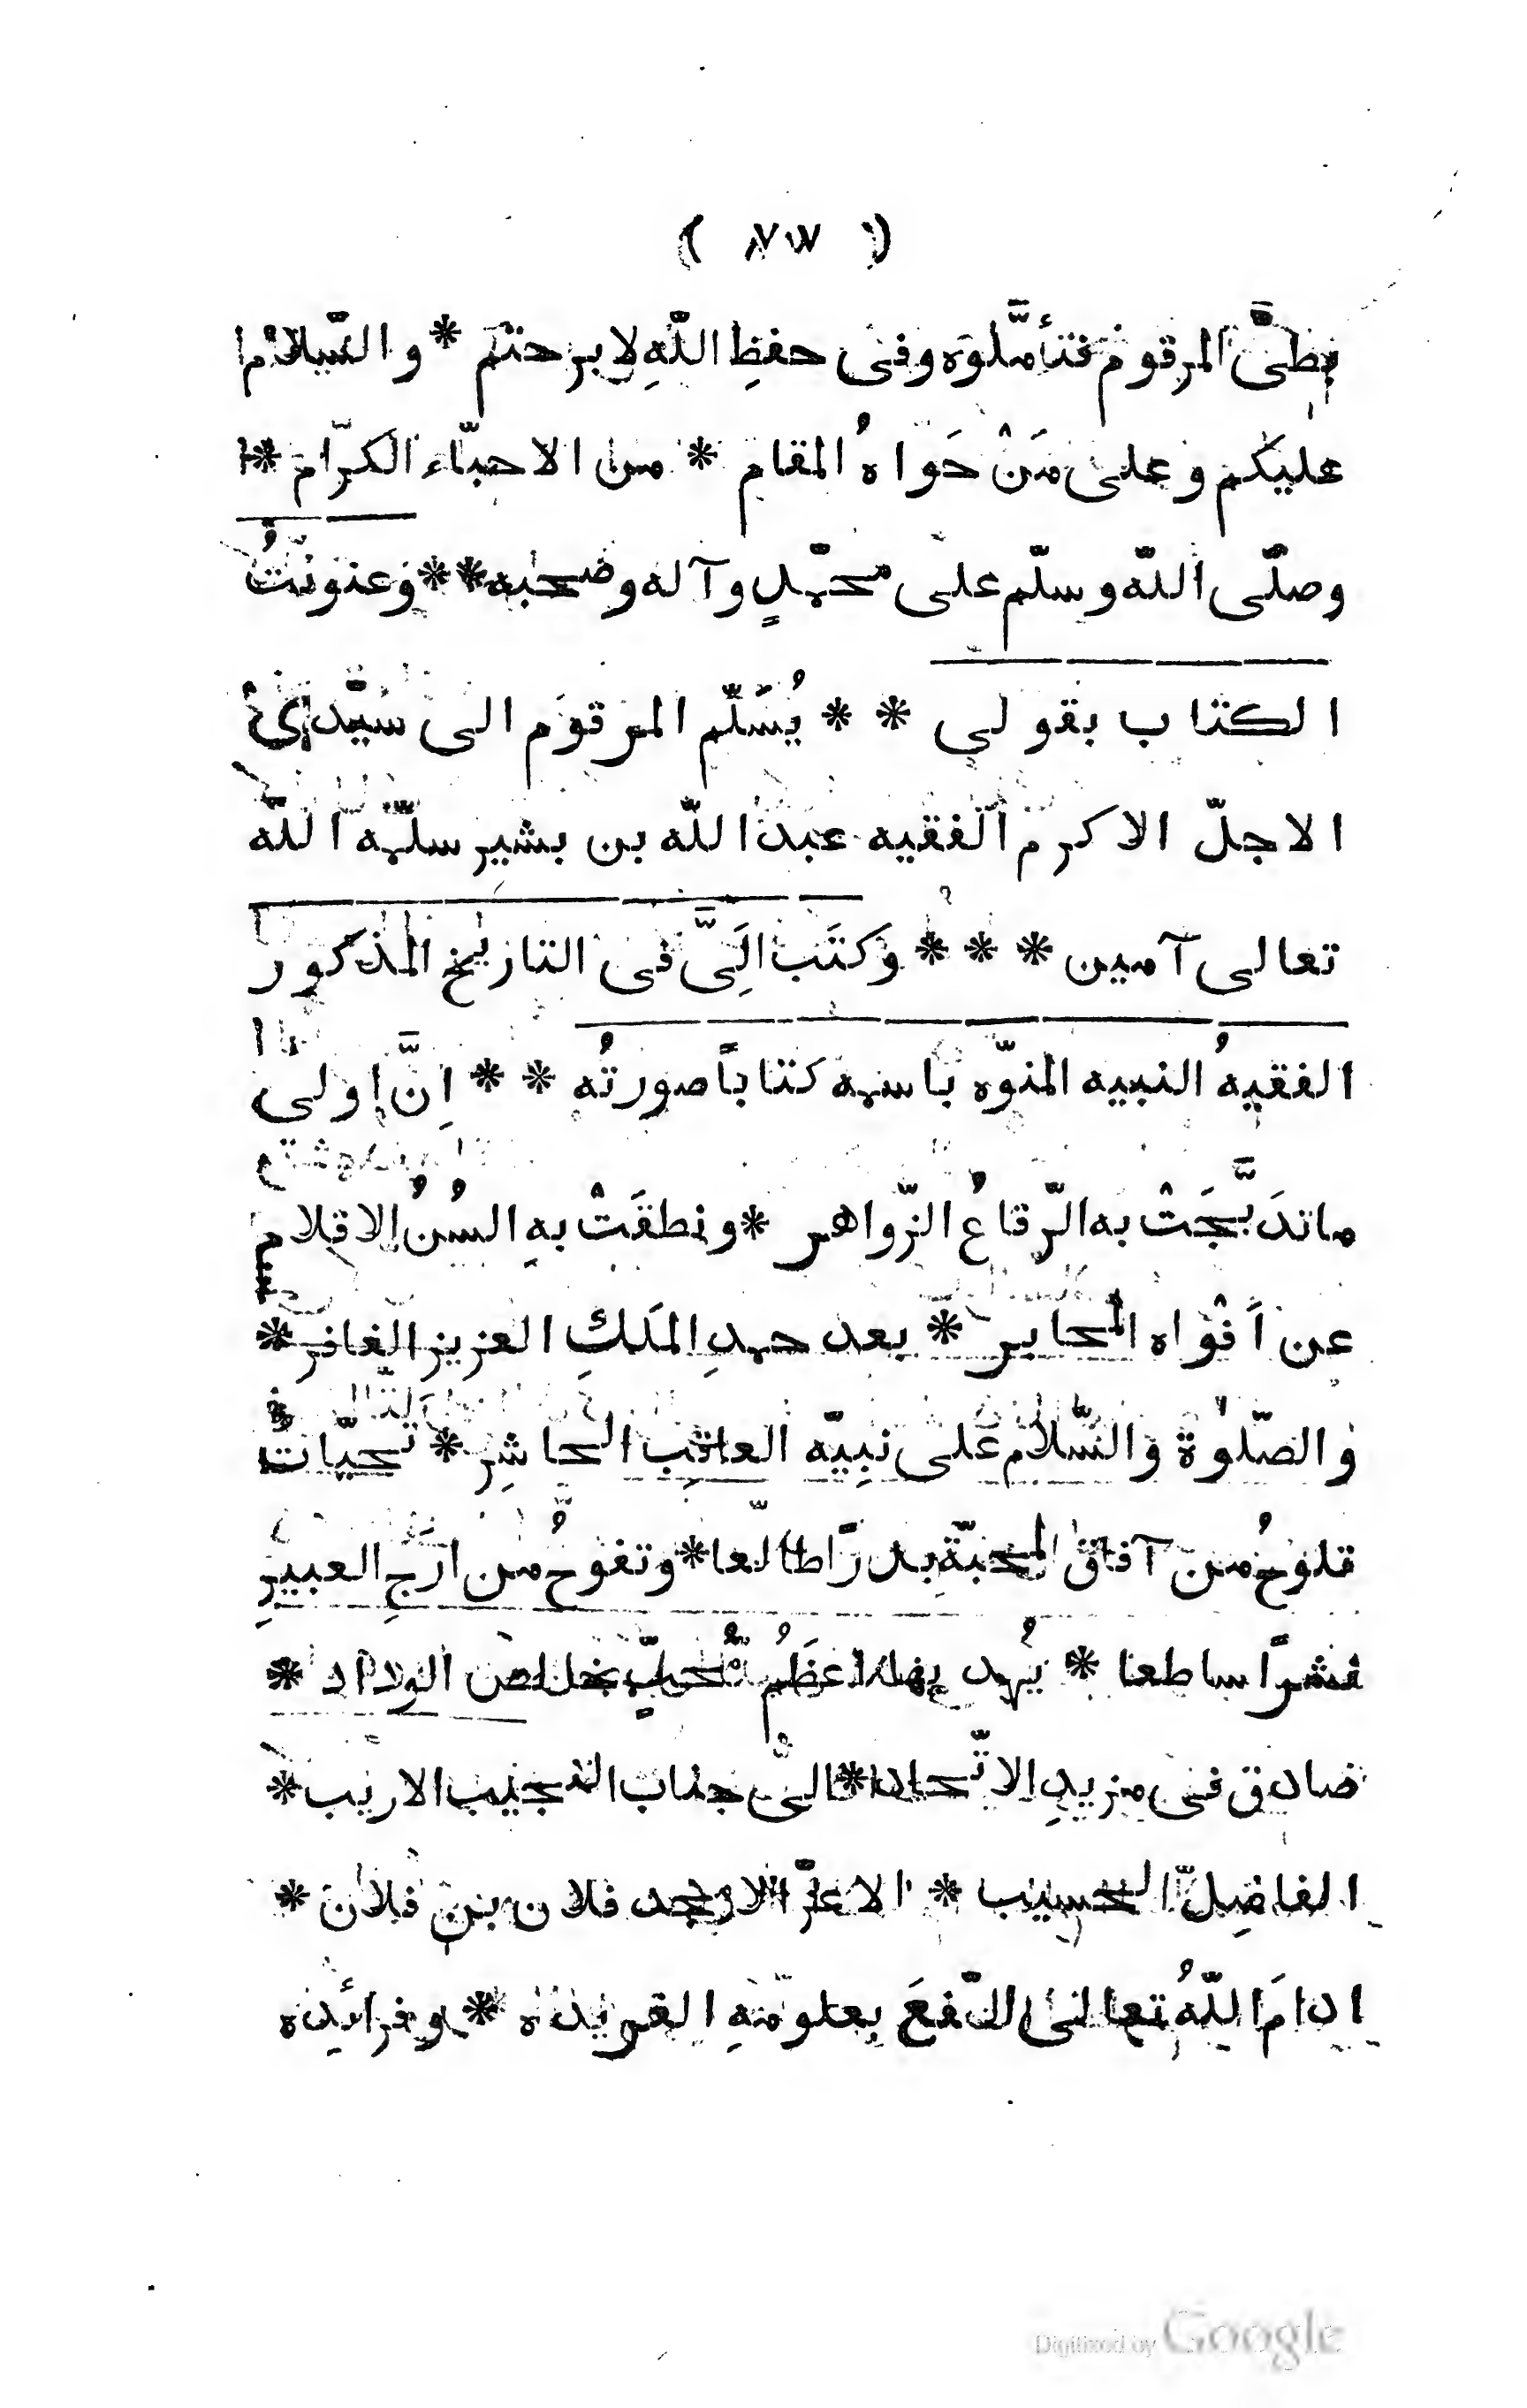 ( ٨٧ )
بطىَّ المرقوم فتأمَّلوه وفى حفظِ اللّٰهِ لا برحتم * والسّلام
عليكم وعلى مَنْ حَواهُ المقام * من الاحبّاء الكرّام *
وصلّى اللّٰه وسلّم على محمّدٍ وآله وصحبه * * وعنونتُ
الكتاب بقولى * * يُسَلّم المرقوم الى سيّدى
الاجلّ الاكرم الفقيه عبد اللّٰه بن بشير سلّمه اللّٰه
تعالى آمين * * * وكتَب الَىَّ فى التاريخ المذكور
الفقيهُ النبيه المنوّه باسمه كتاباً صورتُه * * اِنَّ اولى
ما تدَبَّجَتْ به الرّقاعُ الزّواهر * ونطقَتْ بهِ السُنُ الاقلام
عن اَفْواه المحابر * بعد حمدِ الملَكِ العزيز الغافر *
والصّلوٰة والسّلام على نبيّه العاقب الحاشِر * تحيّاتٌ
تلوحُ من آفاق المحبّةِ بدرًا طالعا * وتفوحُ من ارَجِ العبيرِ
نشرًا ساطعا * يُهديها اعظَمُ مُحبٍّ خالص الوداد *
صادق فى مزيدِ الاتّحاد * الى جناب النجيب الاريب *
الفاضِل الحسيب * الاعزّ الامجد فلان بن فلان *
ادامَ اللّٰهُ تعالى النّفعَ بعلومهِ الفريده * وفرائدِه
Digitized by Google